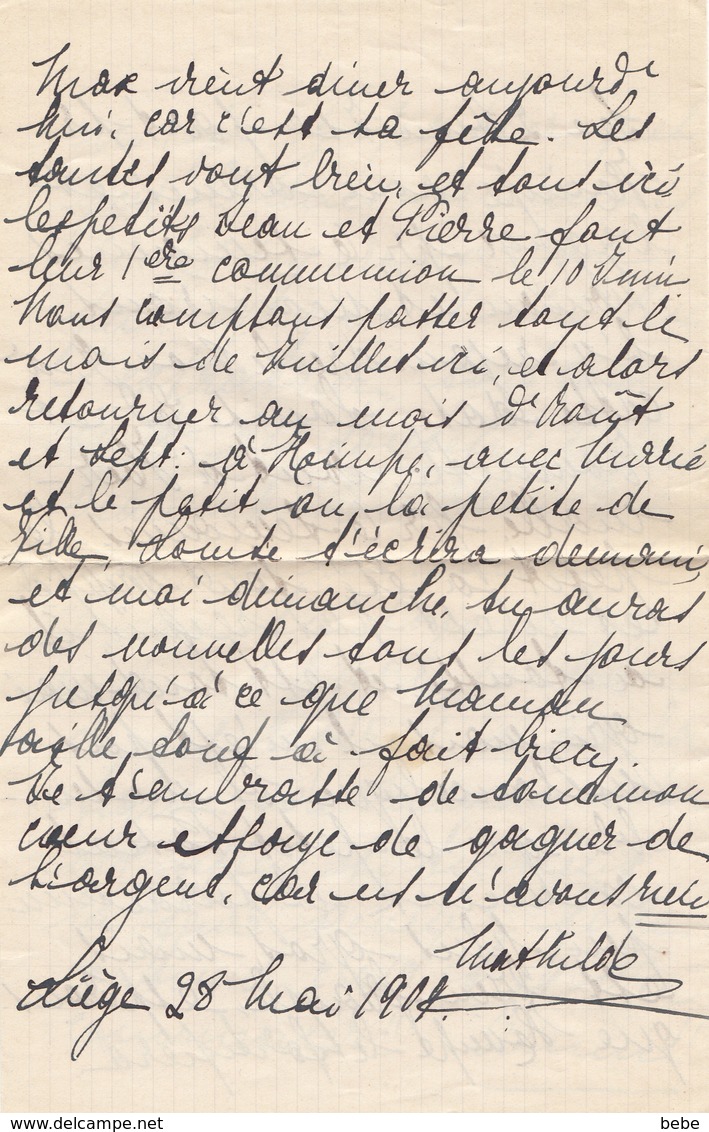 Max vient diner aujourd'
hui, car c'est sa fête. Les
tantes vont bien, et tous ici,
les petits Jean et Pierre font
leur 1ère communion le 10 Juin
Nous comptons passer tout le
mois de Juillet ici, et alors
retourner au mois d'Août
et Sept: à, avec Marie
et le petit ou la petite de
t'écrira demain,
et moi dimanche, tu auras
des nouvelles tous les jours
jusqu'à ce que Maman
aille tout à fait bien.
Je t'embrasse de tout mon
cœur de gagner de
l'argent, car n'avons rien
Mathilde
Liège 28 Mai 1907.
delcampe.net
bebe